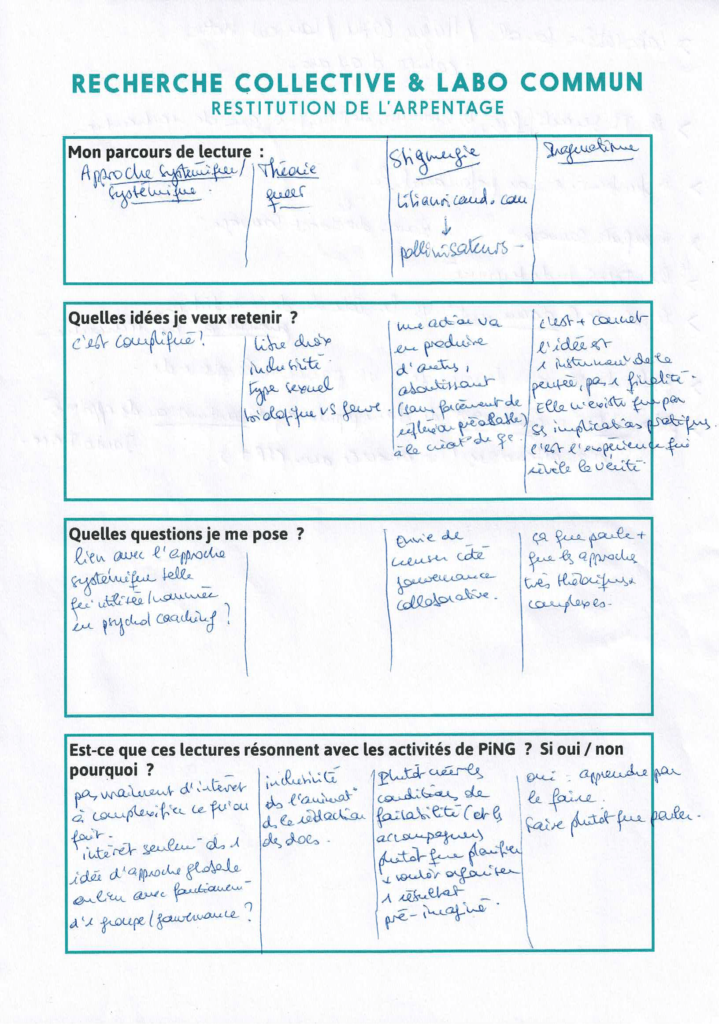 RECHERCHE COLLECTIVE & LABO COMMUN
RESTITUTION DE L'ARPENTAGE
Mon parcours de lecture :
Approche systémique/
systémique.
Théorie
queer
Stigmergie
lilianricaud.com
↓
pollinisateurs -
Pragmatisme
Quelles idées je veux retenir ?
c'est compliqué !
libre choix
inclusivité
type sexuel
biologique VS genre
une action va
en produire
d'autres,
aboutissant
(sans forcément de
réflexion préalable)
à la créat° de qc.
c'est + concret
l'idée est
1 instrument de la
pensée, pas 1 finalité.
Elle n'existe que par
ses implications pratiques.
C'est l'expérience qui
révèle la vérité.
Quelles questions je me pose ?
lien avec l'approche
systémique telle
qu'utilisée/nommée
en psycho/coaching ?
envie de
creuser côté
gouvernance
collaborative.
ça me parle +
que les approches
très théoriques
complexes.
Est-ce que ces lectures résonnent avec les activités de PiNG ? Si oui / non
pourquoi ?
pas vraiment d'intérêt
à complexifier ce qu'on
fait.
intérêt seulem' ds 1
idée d'approche globale
en lien avec fonctionnem'
d'1 groupe/gouvernance ?
inclusivité
ds l'animat°
ds la rédaction
des docs.
Plutôt créer les
conditions de
faisabilité (et les
accompagner)
plutôt que planifier
& vouloir organiser
1 résultat
pré-imaginé.
oui : apprendre par
le faire.
Faire plutôt que parler.